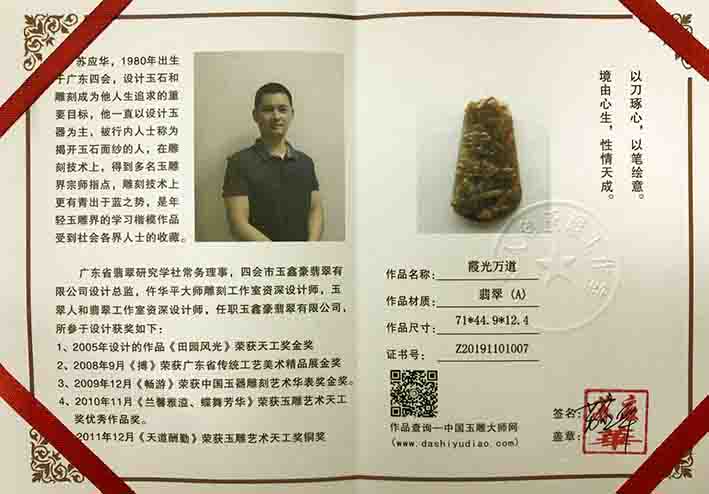 苏应华，1980年出生
于广东四会，设计玉石和
雕刻成为他人生追求的重
要目标，他一直以设计玉
器为主，被行内人士称为
揭开玉石面纱的人，在雕
刻技术上，得到多名玉雕
界宗师指点，雕刻技术上
更有青出于蓝之势，是年
轻玉雕界的学习楷模作品
受到社会各界人士的收藏。
广东省翡翠研究学社常务理事，四会市玉鑫豪翡翠有
限公司设计总监，仵华平大师雕刻工作室资深设计师，玉
翠人和翡翠工作室资深设计师，任职玉鑫豪翡翠有限公司，
所参于设计获奖如下：
1、2005年设计的作品《田园风光》荣获天工奖金奖
2、2008年9月《搏》荣获广东省传统工艺美术精品展金奖
3、2009年12月《畅游》荣获中国玉器雕刻艺术华表奖金奖。
4、2010年11月《兰馨雅溢、蝶舞芳华》荣获玉雕艺术天工
奖优秀作品奖。
2011年12月《天道酬勤》荣获玉雕艺术天工奖铜奖
以刀琢心，以笔绘意。
境由心生，性情天成。
作品名称：霞光万道
作品材质：翡翠（A）
作品尺寸：71*44.9*12.4
证书号：Z20191101007
作品查询—中国玉雕大师网
（www.dashiyudiao.com）
签名：
盖章：